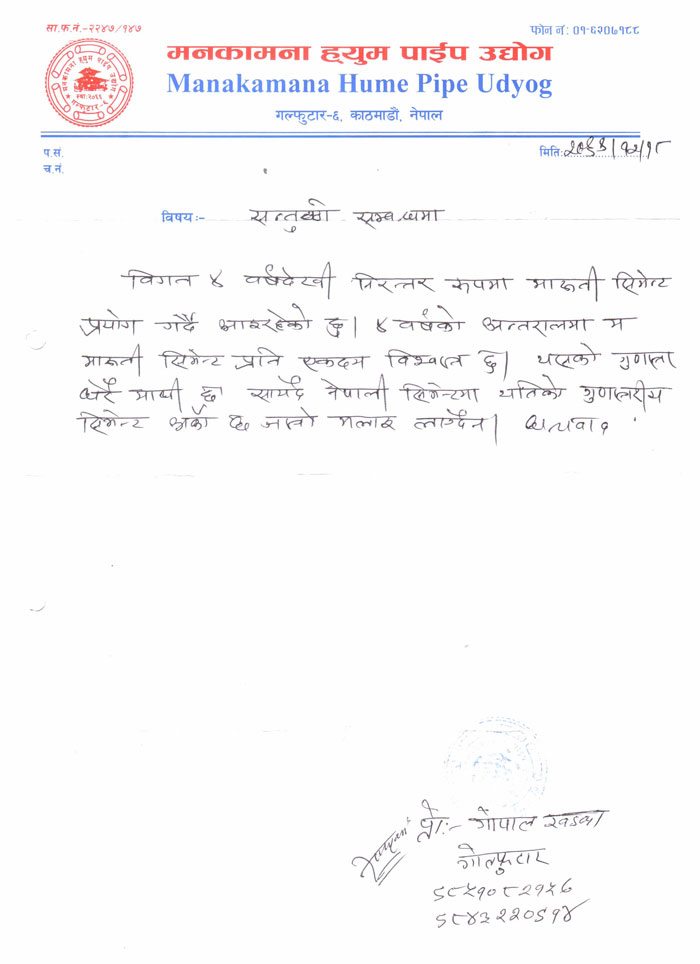 सा.फ.नं.-२२४७/१४७
फोन नं: ०१-६२०७१८८
मनकामना ह्युम पाईप उद्योग
Manakamana Hume Pipe Udyog
गल्फुटार-६, काठमाडौ, नेपाल
प.सं.
च.नं.
मिति:
विषय:- सन्तुष्टी सम्बन्धमा
विगत ४ वर्षदेखी निरन्तर रुपमा मारुती सिमेन्ट
प्रयोग गर्दै आइरहेको छु। ४ वर्षको अन्तरालमा म
मारुती सिमेन्ट प्रति एकदम विश्वस्त छु। यसको गुणस्तर
धेरै माथी छ। सायदै नेपाली सिमेन्टमा यतिको गुणस्तरीय
सिमेन्ट अर्को छ जस्तो मलाइ लाग्दैन। धन्यवाद
प्रो:- गोपाल खड्का
गोल्फुटार
९८५१०८२१५६
९८४३२२०९१४